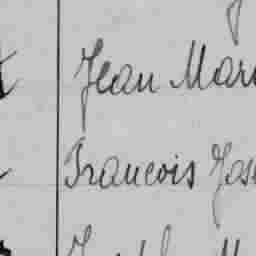 Jean Mar
Francois Jos